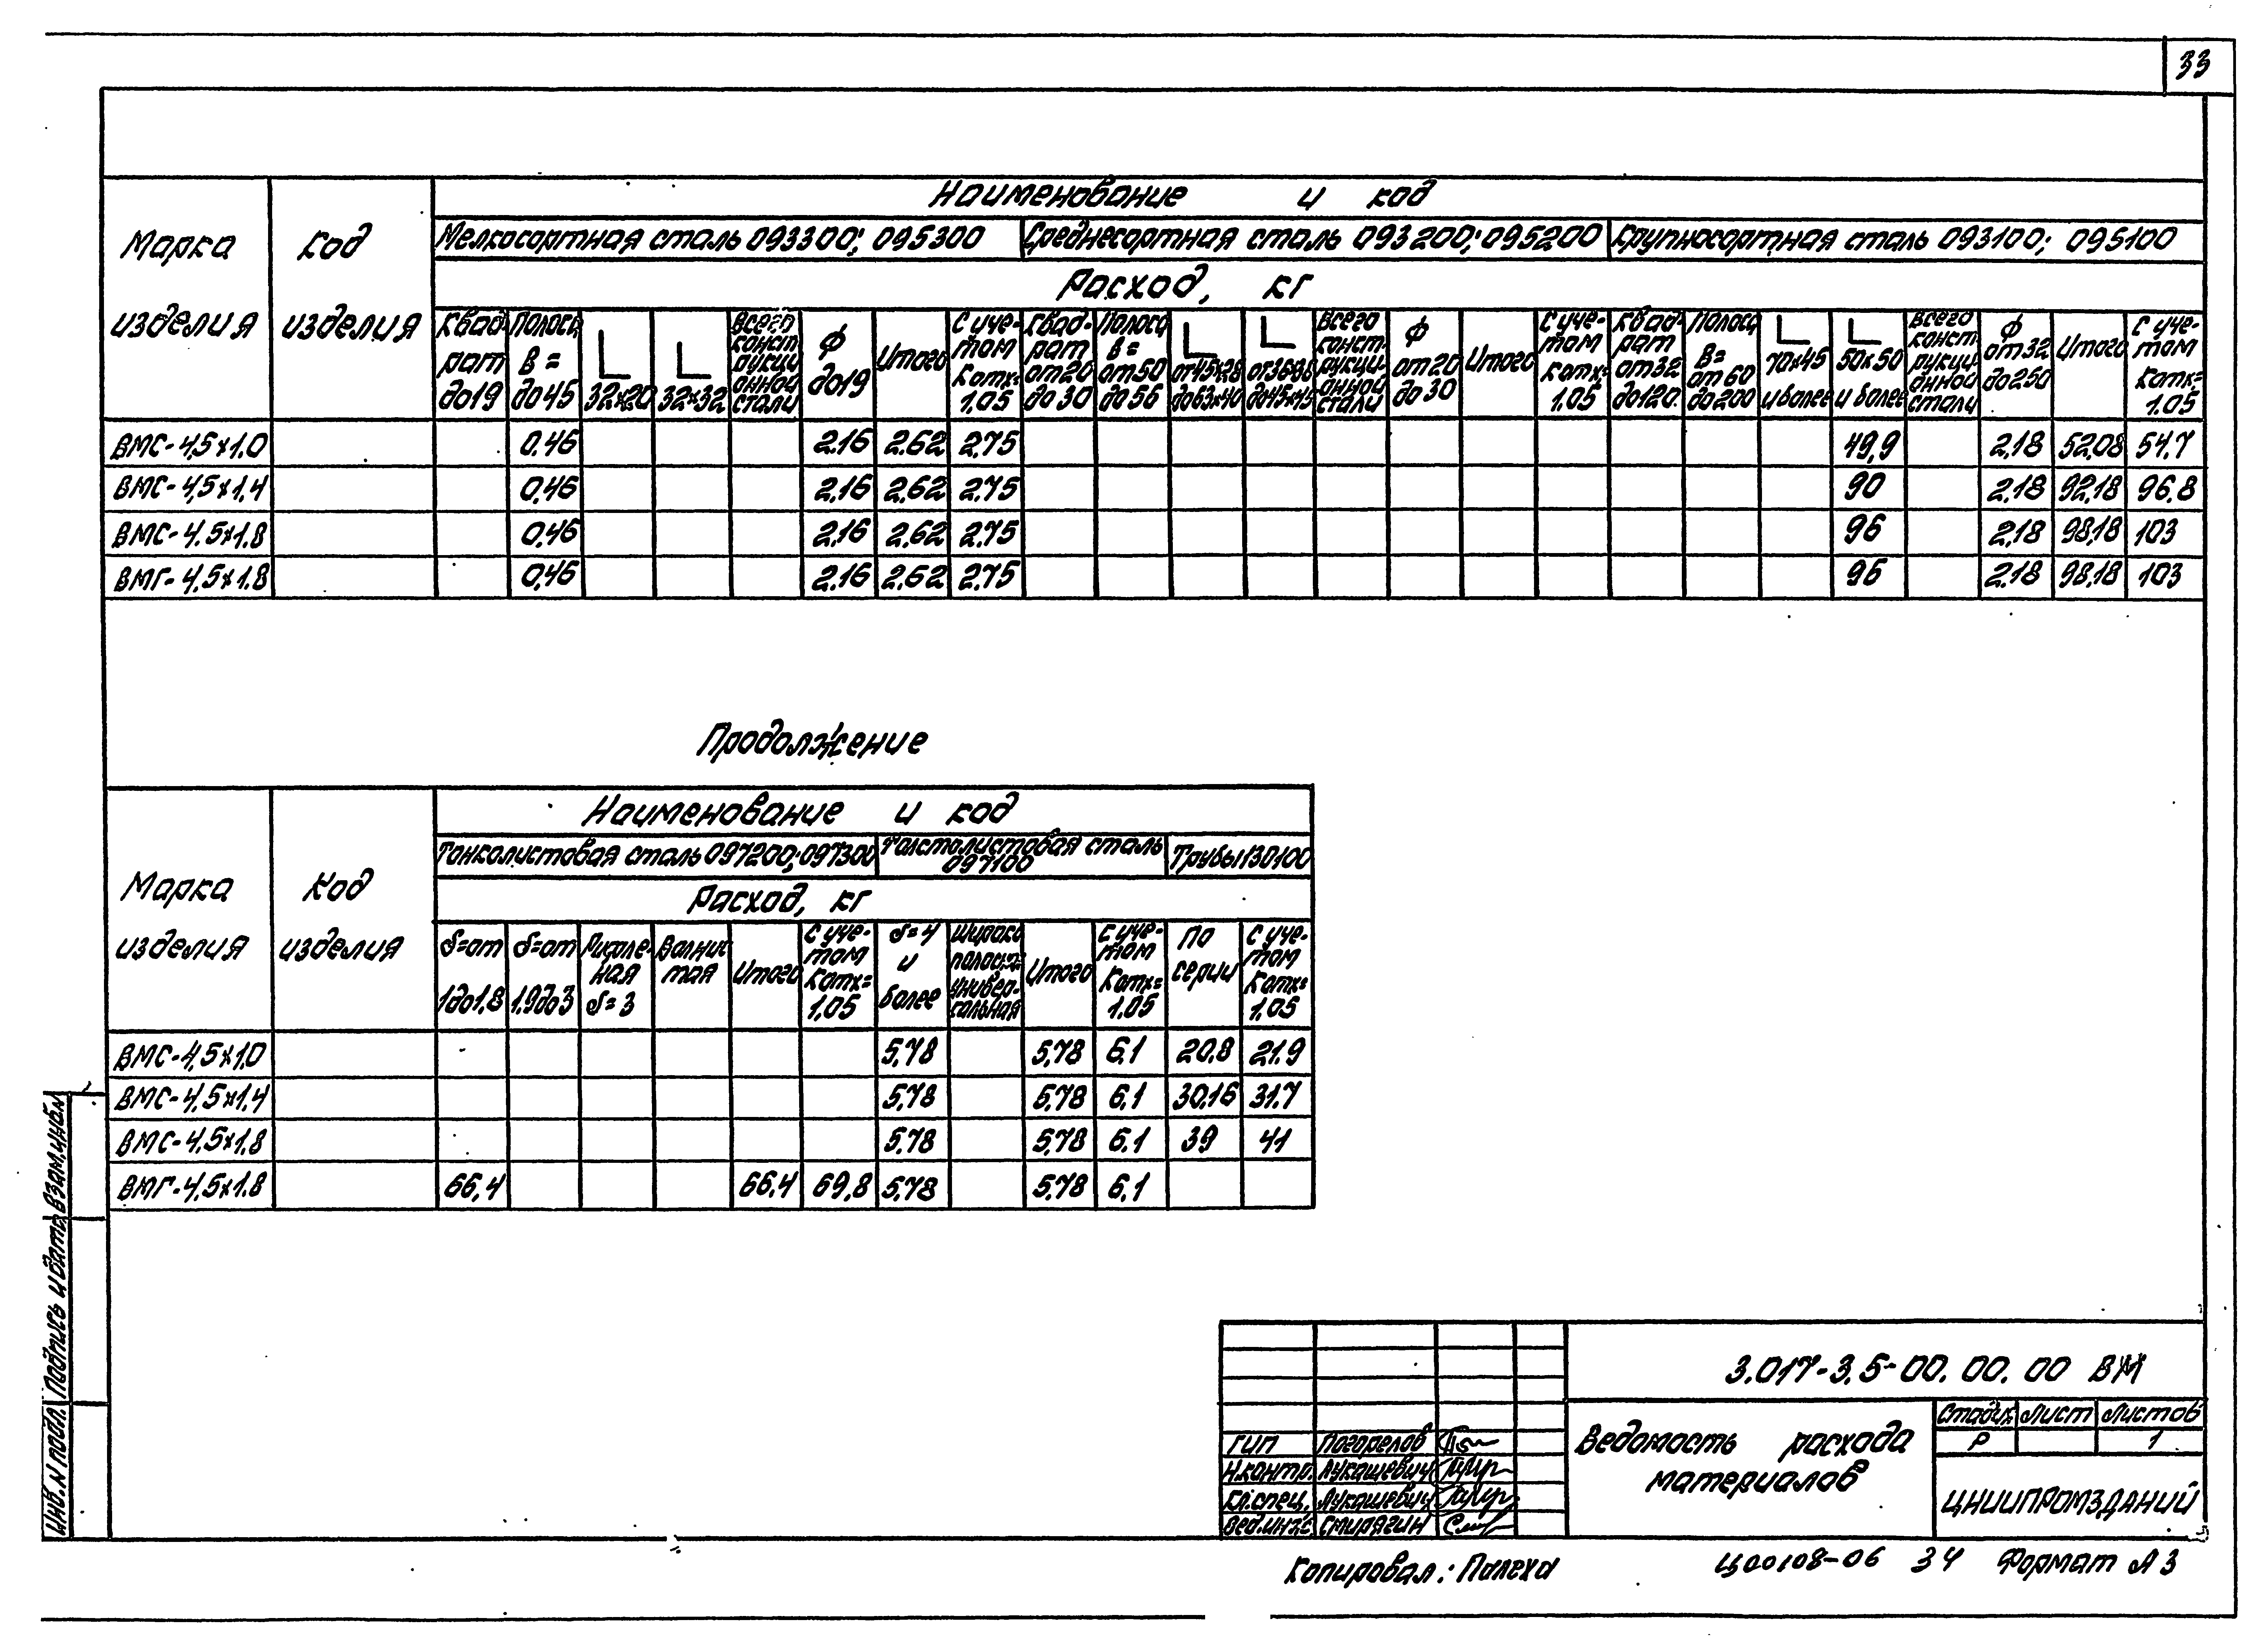 33
Наименование и код
Марка изделия
Код изделия
Мелкосортная сталь 093300; 095300
Среднесортная сталь 093200; 095200
Крупносортная сталь 093100; 095100
Расход, кг
Квадрат до19
Полоса В= до45
32×20
32×32
Всего конструкционной стали
Ф до19
Итого
С учетом Котх= 1.05
Квад-рат от20 до30
Полоса В= от50 до56
от45×28 до63×40
от36×38 до45×45
Всего конст-рукци-онной стали
Ф от20 до30
Итого
С уче-том Котх= 1.05
Квад-рат от32 до120
Полоса В= от 60 до200
70×45 и более
50×50 и более
Всего конст-рукци-онной стали
Ф от32 до250
Итого
С уче-том Котх= 1.05
ВМС-4,5×1.0 0,46 2.16 2.62 2.75 49,9 2,18 52,08 54,7
ВМС-4,5×1,4 0,46 2,16 2,62 2.75 90 2,18 92,18 96,8
ВМС-4.5×1.8 0,46 2,16 2,62 2.75 96 2,18 98,18 103
ВМГ-4,5×1.8 0,46 2.16 2.62 2.75 96 2.18 98,18 103
Продолжение
Наименование и код
Марка изделия
Код изделия
Тонколистовая сталь 097200; 097300
Толстолистовая сталь 097100
Трубы 130100
Расход, кг
δ=от 1до1,8
δ=от 1,9до3
Рифле-ная δ=3
Волнис-тая
Итого
С уче-том Котх= 1,05
δ=4 и более
Широко полосн. универ-сальная
Итого
С уче-том Котх= 1.05
По серии
С уче-том Котх= 1,05
ВМС-4,5×1.0 5,78 5,78 6,1 20,8 21.9
ВМС-4,5×1,4 5,78 5,78 6,1 30,16 31.7
ВМС-4,5×1.8 5.78 5,78 6.1 39 41
ВМГ-4,5×1.8 66,4 66,4 69,8 5,78 5,78 6,1
Инв. N подл. Подпись и дата Взам.инв.N
3.017-3.5-00.00.00 ВМ
Ведомость расхода
материалов
Стадия Лист Листов
Р 1
ЦНИИПРОМЗДАНИЙ
ГИП Погорелов
Н.контр. Лукашевич
Гл.спец. Лукашевич
Вед.инж. Смирягин
Копировал: Палеха
Ц00108-06 34 Формат А3